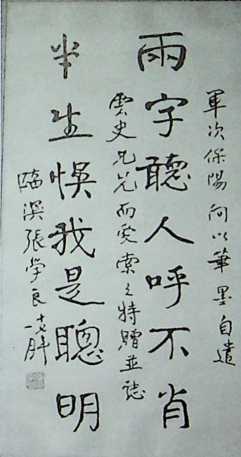 軍次保陽向以筆墨自遣
兩字聽人呼不肖
雲史兄而愛索之特贈並誌
半生悞我是聰明
臨溟張學良